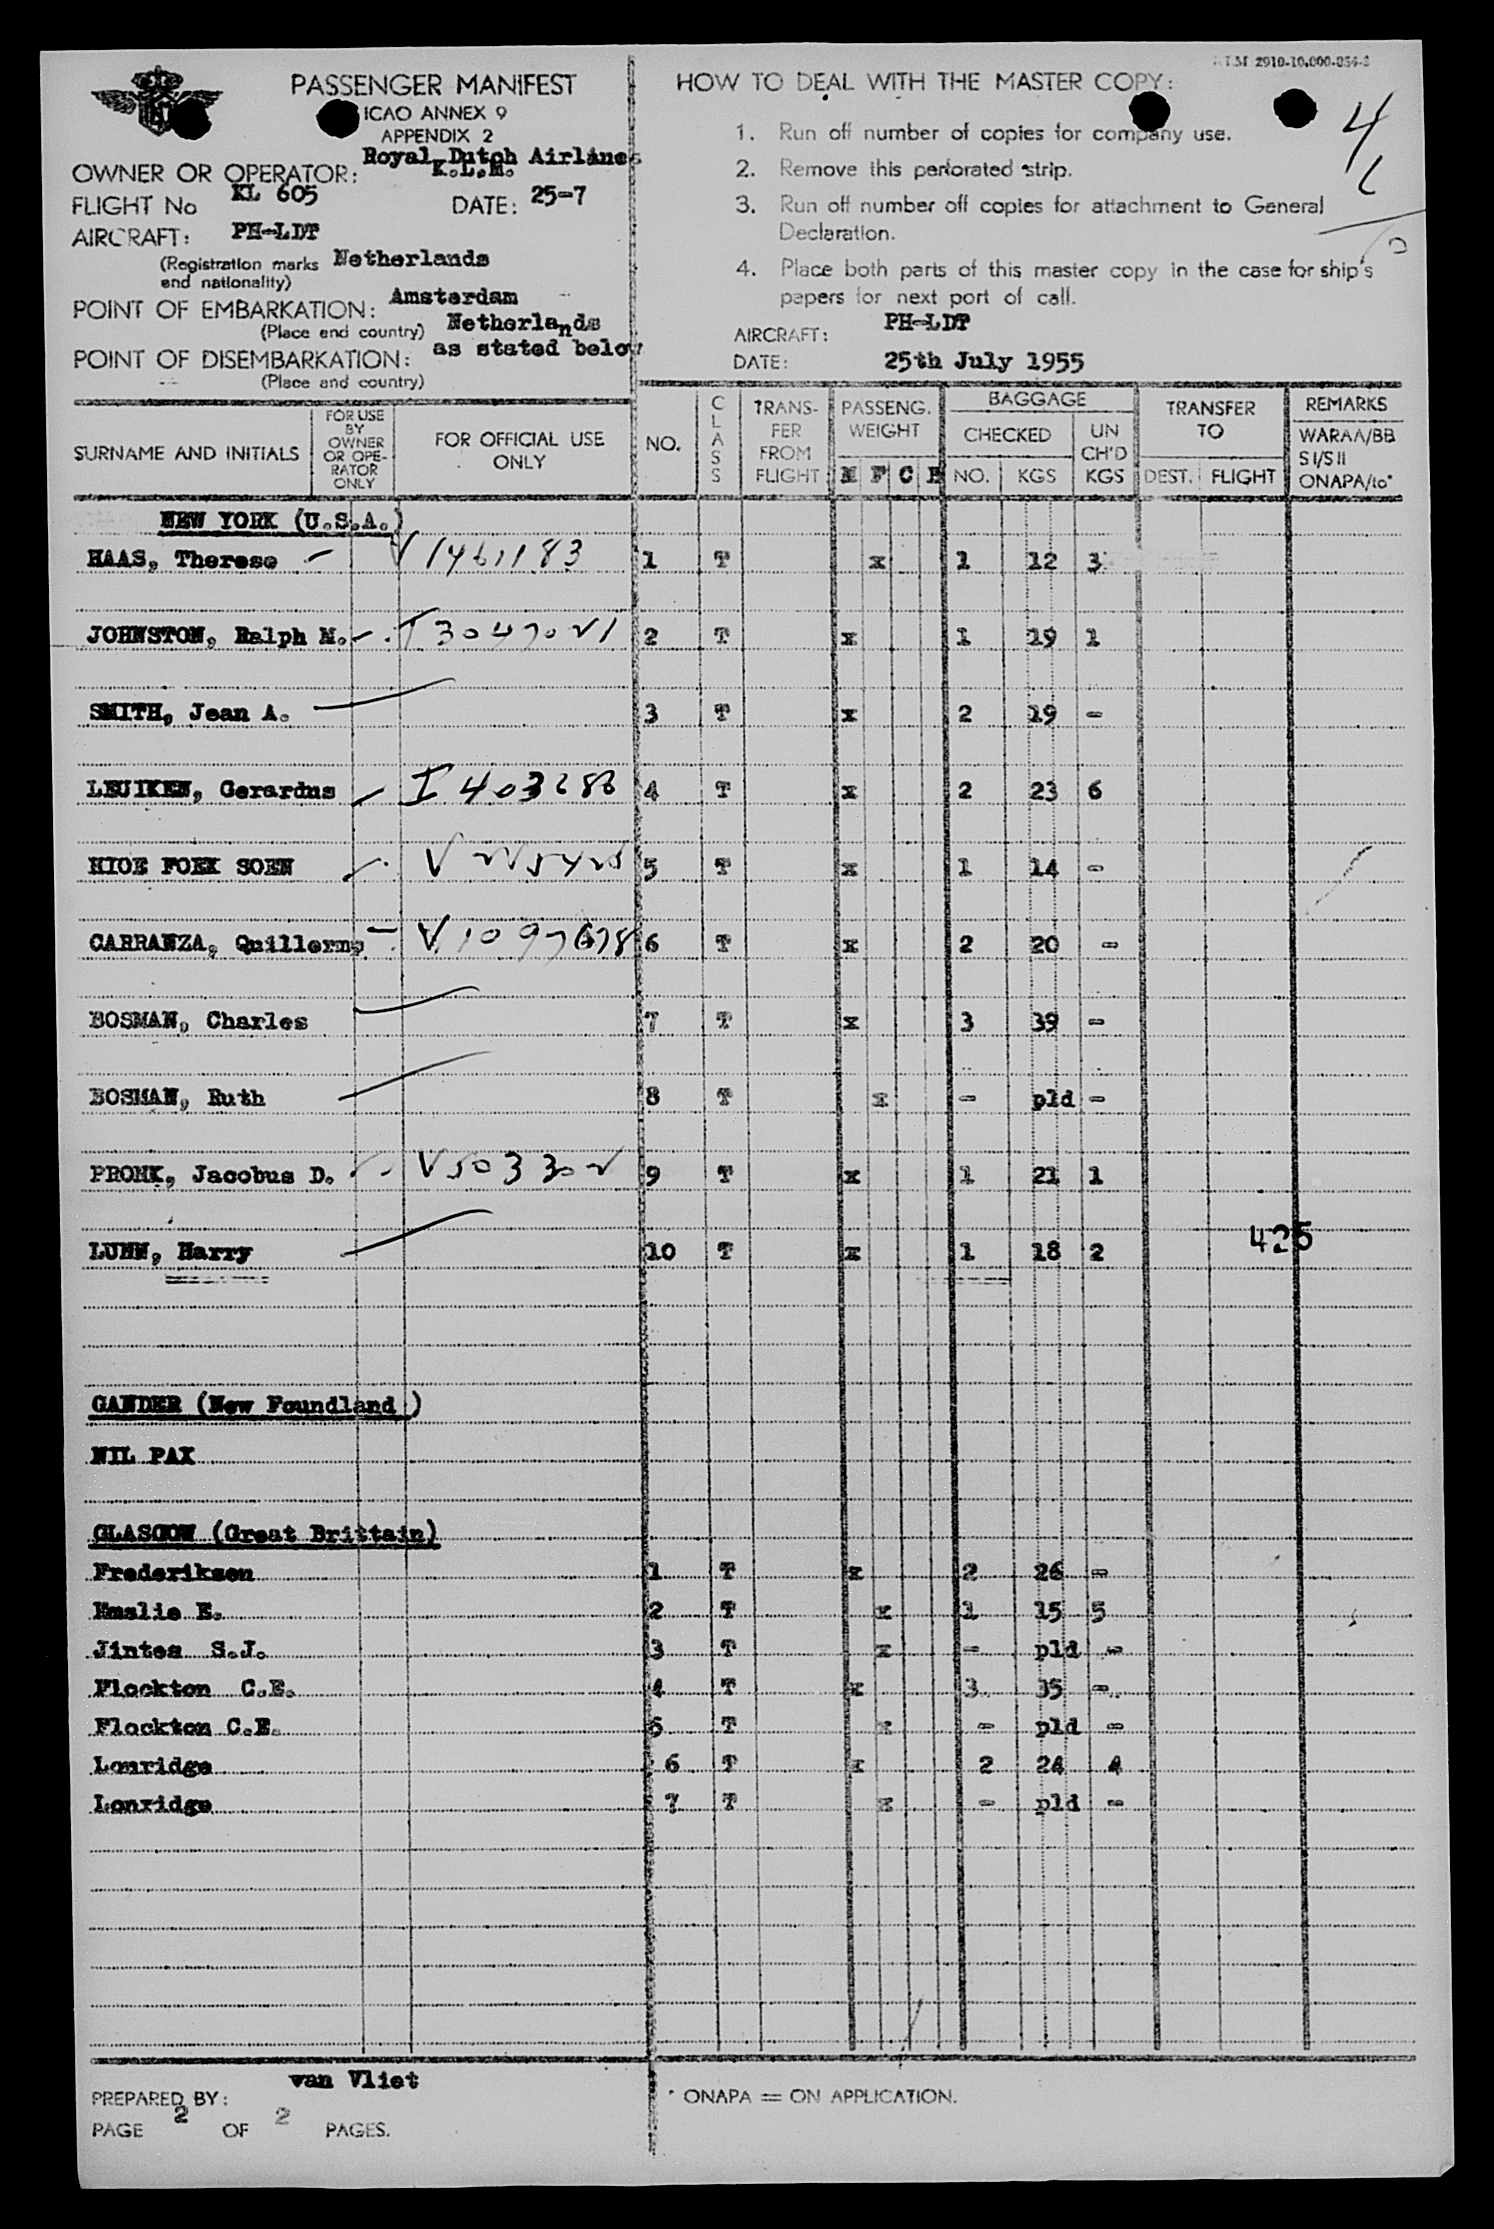 K.L.M. 2910-10.000-854-3
PASSENGER MANIFEST
ICAO ANNEX 9
APPENDIX 2
OWNER OR OPERATOR: Royal Dutch Airlines
K.L.M.
FLIGHT No KL 605 DATE: 25-7
AIRCRAFT: PH-LDT
(Registration marks and nationality) Netherlands
POINT OF EMBARKATION: Amsterdam
(Place and country) Netherlands
POINT OF DISEMBARKATION: as stated below
(Place and country)
HOW TO DEAL WITH THE MASTER COPY:
1. Run off number of copies for company use.
2. Remove this perforated strip.
3. Run off number off copies for attachment to General
Declaration.
4. Place both parts of this master copy in the case for ship's
papers for next port of call.
AIRCRAFT: PH-LDT
DATE: 25th July 1955
4
SURNAME AND INITIALS FOR USE BY OWNER OR OPERATOR ONLY FOR OFFICIAL USE ONLY NO. CLASS TRANSFER FROM FLIGHT PASSENG. WEIGHT M F C B BAGGAGE CHECKED NO. KGS UN CH'D KGS TRANSFER TO DEST. FLIGHT REMARKS WARAA/BB SI/SII ONAPA/to*
NEW YORK (U.S.A.)
HAAS, Therese V 1461183 1 T x 1 12 3
JOHNSTON, Ralph M. 2 T x 1 19 1
SMITH, Jean A. 3 T x 2 19 -
LEUIKEN, Gerardus I 403286 4 T x 2 23 6
HIOE FOEK SOEN 5 T x 1 14 -
CARRANZA, Quillermo V 1097678 6 T x 2 20 -
BOSMAN, Charles 7 T x 3 39 -
BOSMAN, Ruth 8 T x - pld -
PRONK, Jacobus D. V 503302 9 T x 1 21 1
LUHN, Harry 10 T x 1 18 2
425
GANDER (New Foundland)
NIL PAX
GLASGOW (Great Brittain)
Frederiksen 1 T x 2 26 -
Emslie E. 2 T x 1 15 5
Jintes S.J. 3 T x - pld -
Flockton C.E. 4 T x 3 35 -
Flockton C.E. 5 T x - pld -
Lonridge 6 T x 2 24 4
Lonridge 7 T x - pld -
PREPARED BY: van Vliet
PAGE 2 OF 2 PAGES.
* ONAPA = ON APPLICATION.